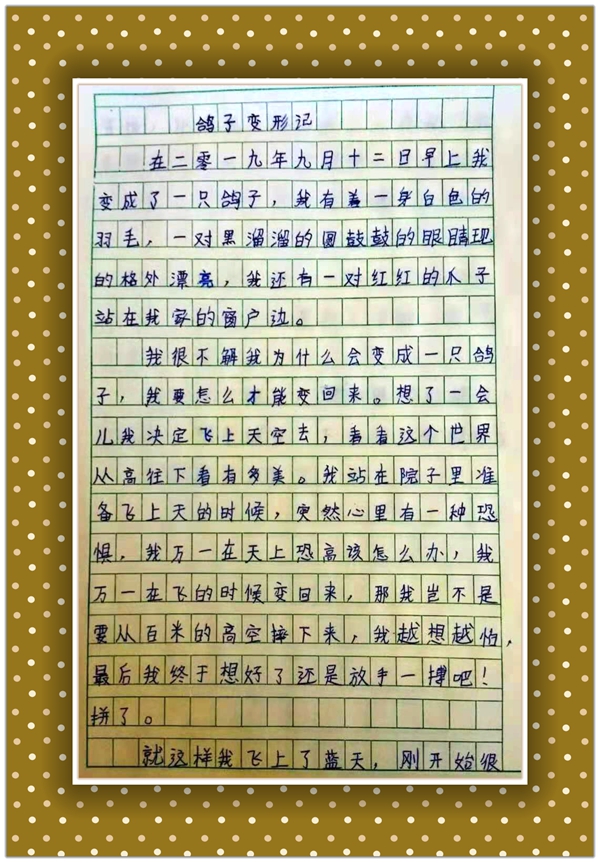 鸽子变形记
在二零一九年九月十二日早上我
变成了一只鸽子，我有着一身白色的
羽毛，一对黑溜溜的圆鼓鼓的眼睛现
的格外漂亮，我还有一对红红的爪子
站在我家的窗户边。
我很不解我为什么会变成一只鸽
子，我要怎么才能变回来。想了一会
儿我决定飞上天空去，看看这个世界
从高往下看有多美。我站在院子里准
备飞上天的时候，突然心里有一种恐
惧，我万一在天上恐高该怎么办，我
万一在飞的时候变回来，那我岂不是
要从百米的高空摔下来，我越想越怕，
最后我终于想好了还是放手一搏吧！
拼了。
就这样我飞上了蓝天，刚开始很